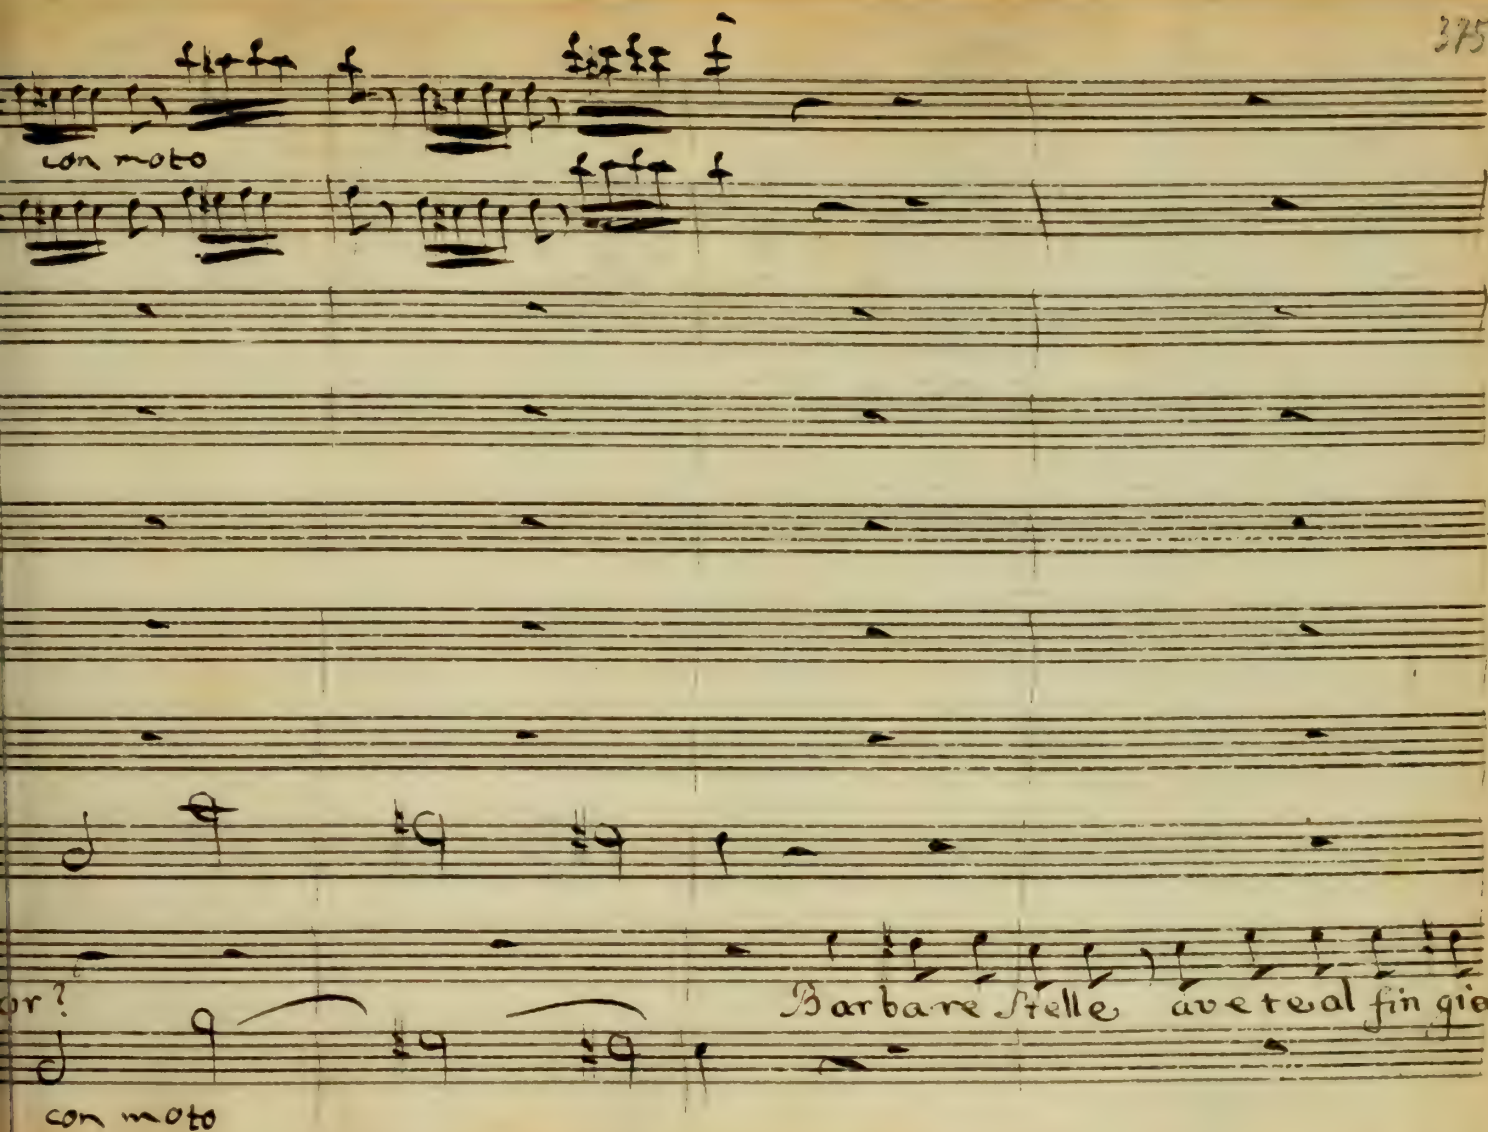 375
con moto
or? Barbare Stelle avete al fin gia
con moto